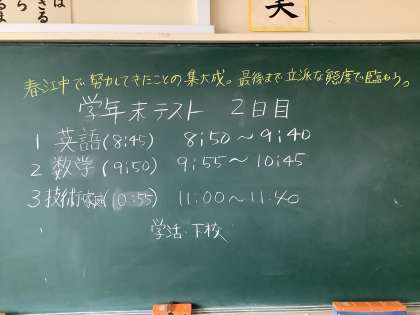 は
さきる
らま
る
笑
春江中で努力してきたことの集大成。最後まで立派な態度で臨もう。
学年末テスト 2日目
1 英語(8:45) 8:50〜9:40
2 数学(9:50) 9:55〜10:45
3 技術家庭(10:55) 11:00〜11:40
学活・下校